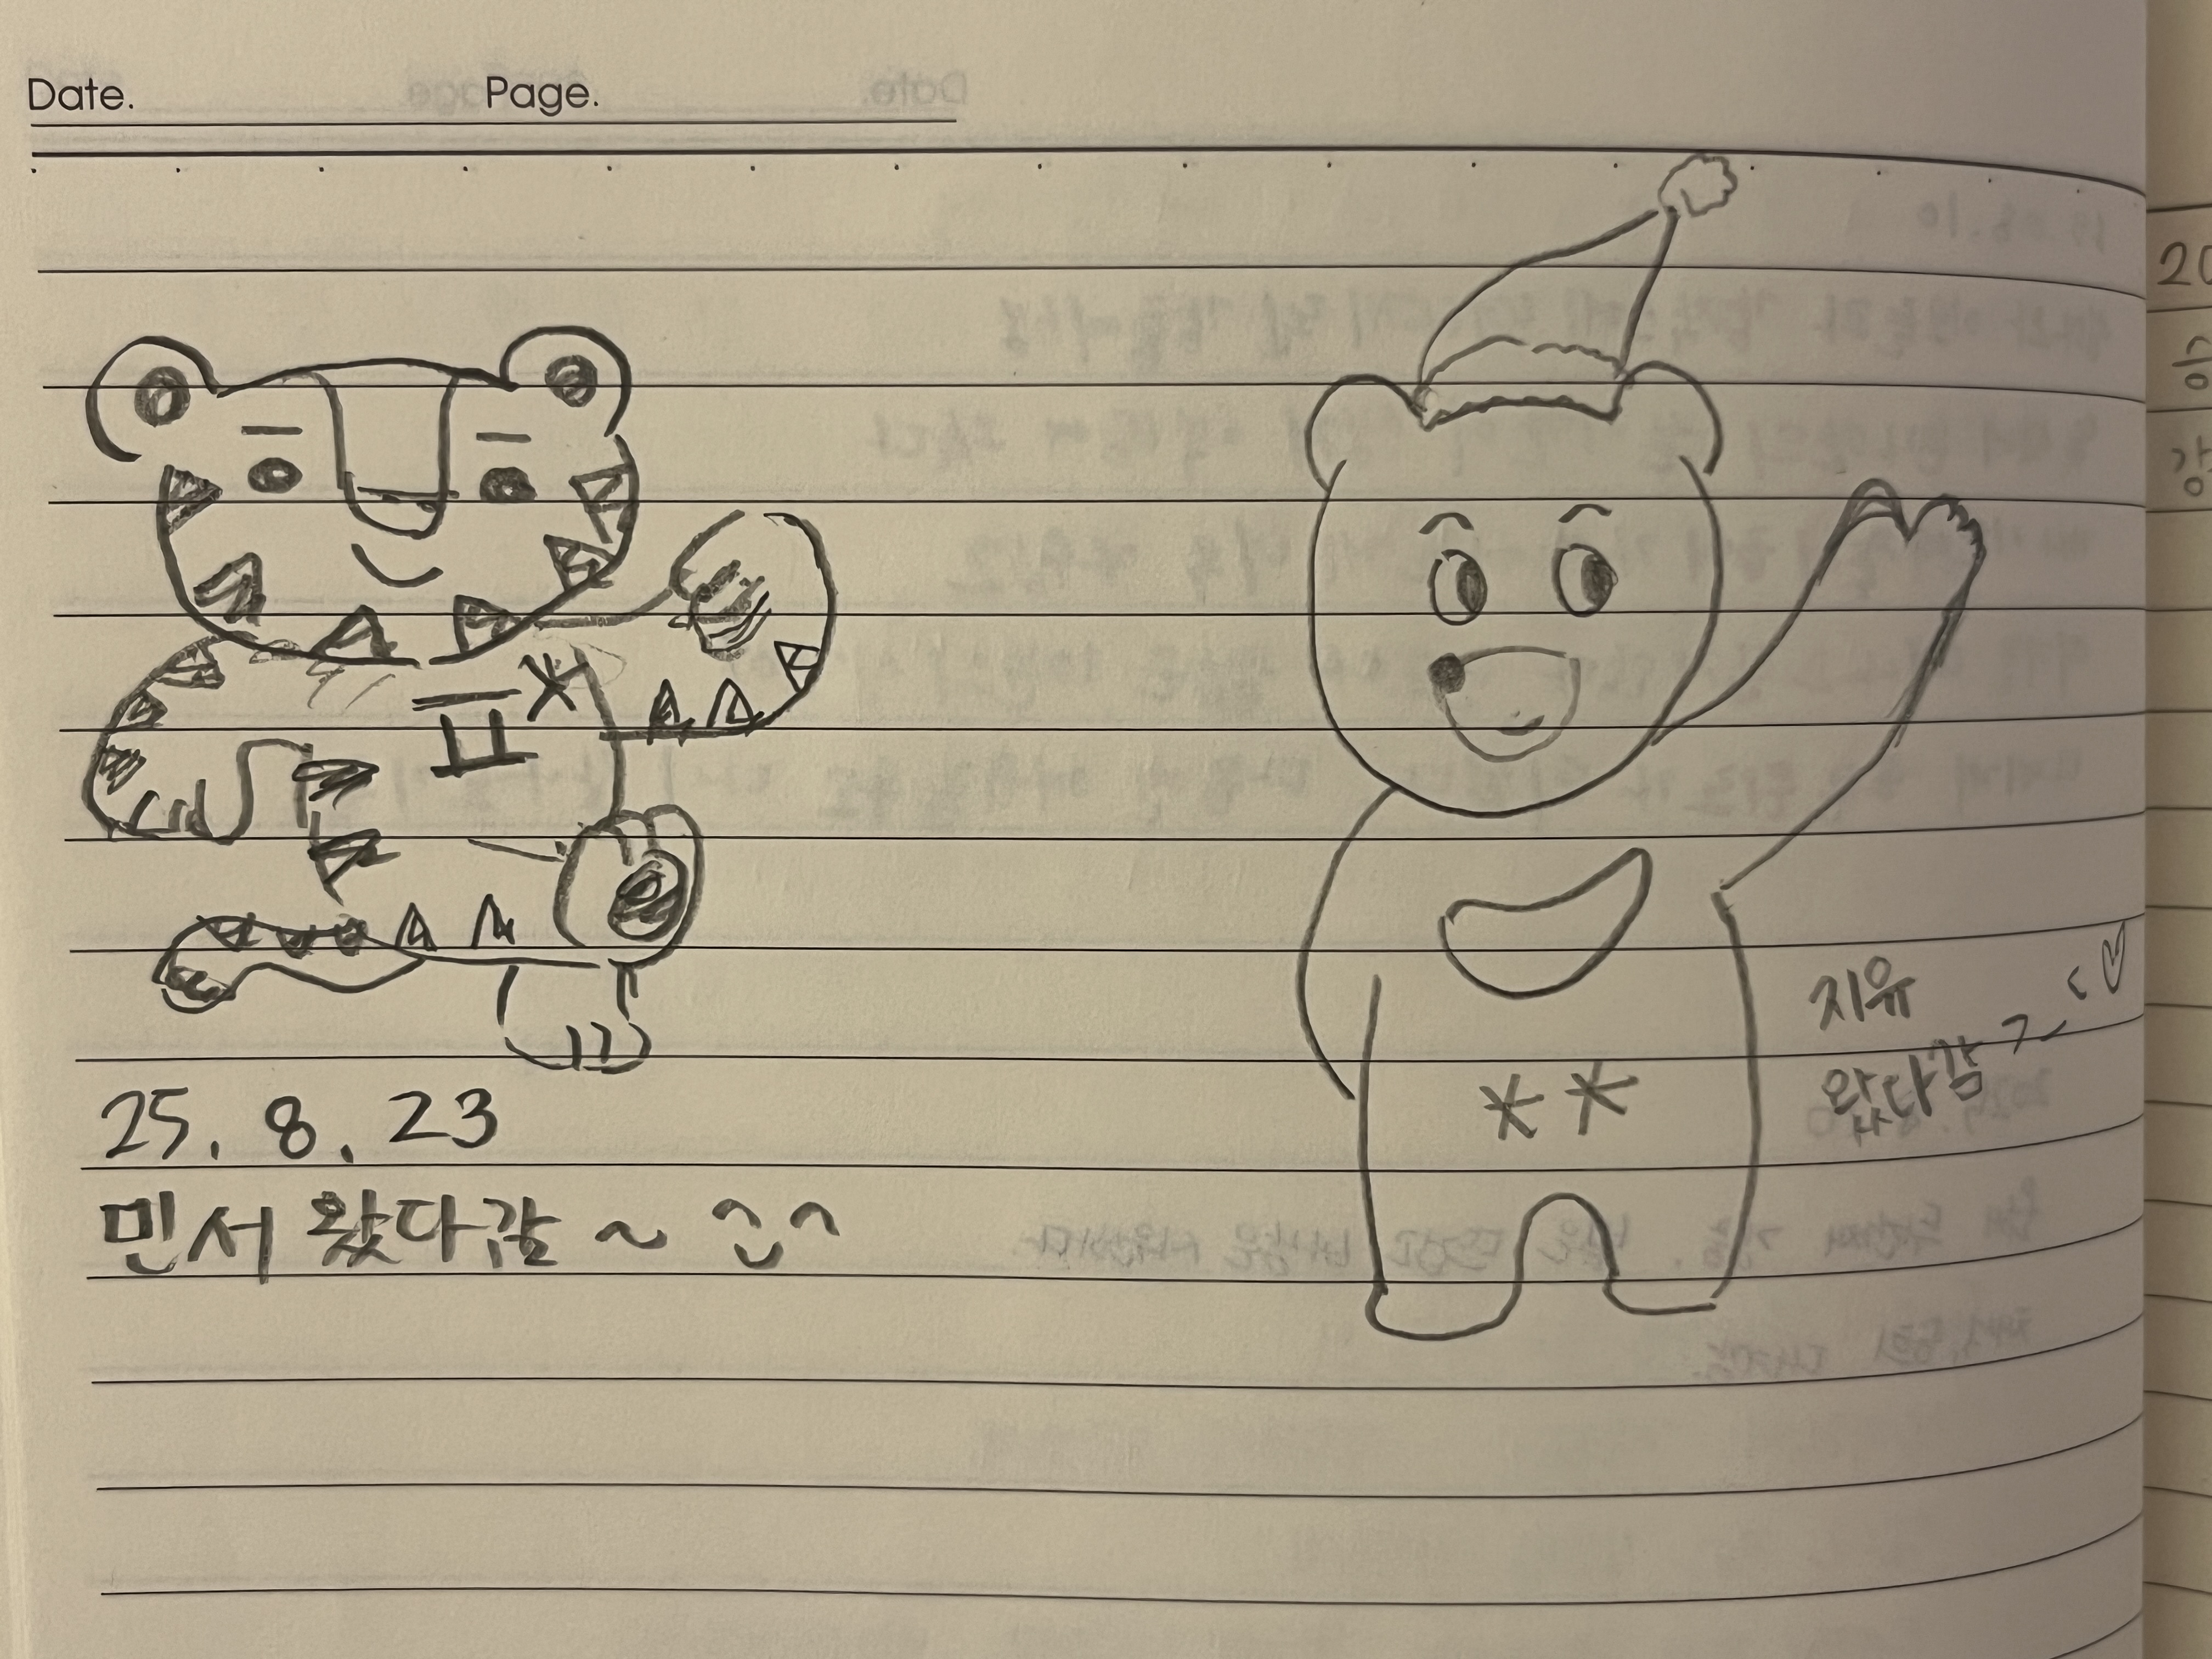 Date. Page.
25. 8. 23
민서 왔다감 ~ ^‿^
지유
왔다감 >_< ♡
20